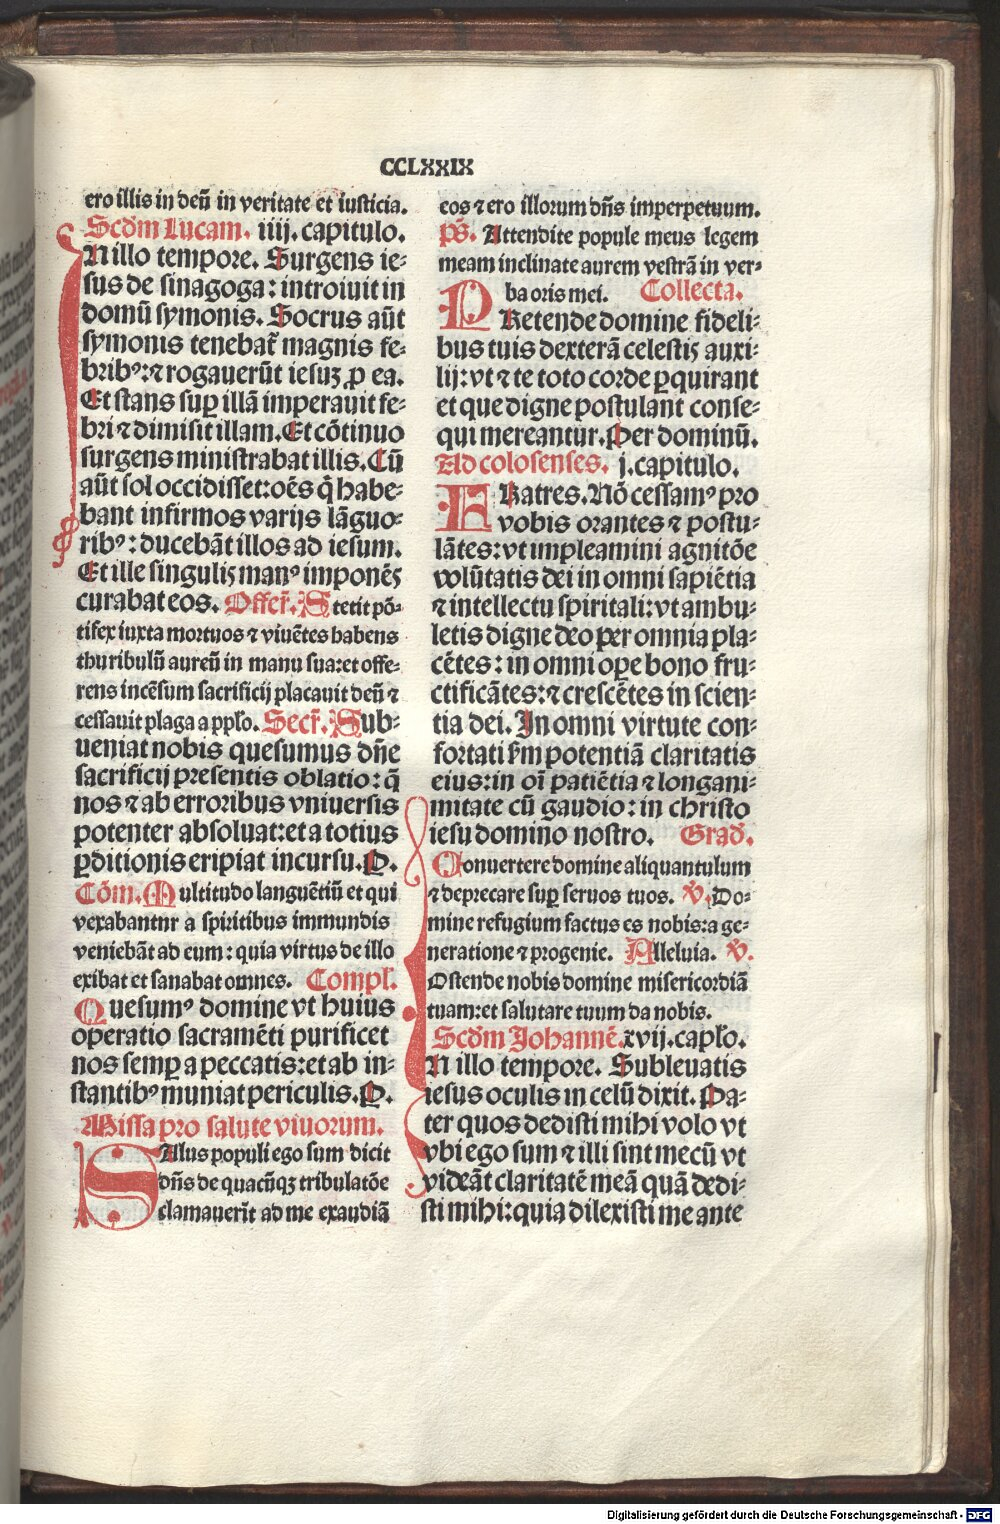 CCLXXIX
ero illis in deū in veritate et iusticia.
Scdm Lucam. iiij. capitulo.
IN illo tempore. Surgens ie⸗
sus de sinagoga: introiuit in
domū symonis. Socrus aūt
symonis tenebat̄ magnis fe⸗
bribꝰ: ⁊ rogauerūt iesuꝫ ꝓ ea.
Et stans suꝑ illā imperauit fe⸗
bri ⁊ dimisit illam. Et cōtinuo
surgens ministrabat illis. Cū
aūt sol occidisset: oēs q̄ habe⸗
bant infirmos varijs lāguo⸗
ribꝰ: ducebāt illos ad iesum.
Et ille singulis manꝰ imponēs
curabat eos. Offer̄. Stetit pō⸗
tifex iuxta mortuos ⁊ viuētes habens
thuribulū aureū in manu sua: et offe⸗
rens incēsum sacrificij placauit deū ⁊
cessauit plaga a pplo. Secr̄. Sub⸗
ueniat nobis quesumus dn̄e
sacrificij presentis oblatio: q̄
nos ⁊ ab erroribus vniuersis
potenter absoluat: et a totius
ꝑditionis eripiat incursu. P.
Cōm. Multitudo languētiū et qui
vexabantnr a spiritibus immundis
veniebāt ad eum: quia virtus de illo
exibat et sanabat omnes. Compl.
Quesumꝰ domine vt huius
operatio sacramēti purificet
nos semꝑ a peccatis: et ab in⸗
stantibꝰ muniat periculis. P.
Missa pro salute viuorum.
SAlus populi ego sum dicit
dn̄s de quacūqꝫ tribulatōe
clamauerīt ad me exaudiā
eos ⁊ ero illorum dn̄s imperpetuum.
ps̄. Attendite popule meus legem
meam inclinate aurem vestrā in ver⸗
ba oris mei. Collecta.
PRetende domine fideli⸗
bus tuis dexterā celestis auxi⸗
lij: vt ⁊ te toto corde ꝑquirant
et que digne postulant conse⸗
qui mereantur. Per dominū.
Ad colosenses. j. capitulo.
FRatres. Nō cessamꝰ pro
vobis orantes ⁊ postu⸗
lātes: vt impleamini agnitōe
volūtatis dei in omni sapiētia
⁊ intellectu spiritali: vt ambu⸗
letis digne deo per omnia pla⸗
cētes: in omni oꝑe bono fru⸗
ctificātes: ⁊ crescētes in scien⸗
tia dei. In omni virtute con⸗
fortati sm̄ potentiā claritatis
eius: in oī patiētia ⁊ longani⸗
mitate cū gaudio: in christo
iesu domino nostro. Grad.
Conuertere domine aliquantulum
⁊ deprecare suꝑ seruos tuos. ℣. Do⸗
mine refugium factus es nobis: a ge⸗
neratione ⁊ progenie. Alleluia. ℣.
Ostende nobis domine misericordiā
tuam: et salutare tuum da nobis.
Scdm Johannē. xvij. caplo.
IN illo tempore. Subleuatis
iesus oculis in celū dixit. Pa⸗
ter quos dedisti mihi volo vt
vbi ego sum ⁊ illi sint mecū vt
videāt claritatē meā quā dedi⸗
sti mihi: quia dilexisti me ante
Digitalisierung gefördert durch die Deutsche Forschungsgemeinschaft - DFG